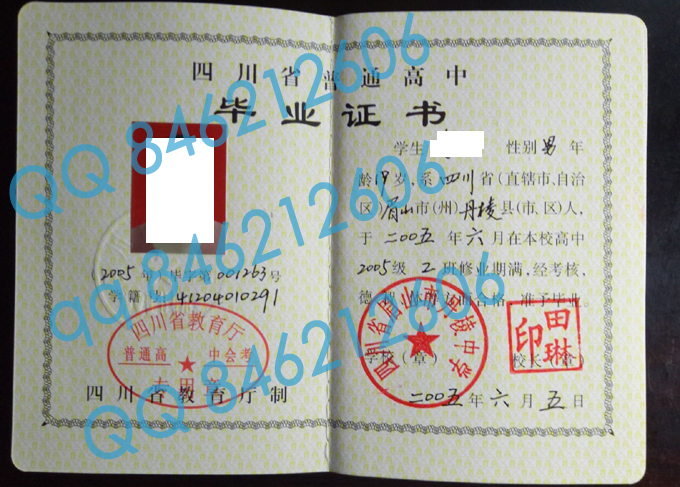 四川省普通高中
毕业证书
(2005年)毕字第001263号
学籍号:41204010291
四川省教育厅
普通高 中会考
专用章
四川省教育厅制
学生 性别男年
龄19岁,系四川省(直辖市、自治
区)眉山市(州)丹棱县(市、区)人,
于二00五年六月在本校高中
2005级2班修业期满,经考核,
德 体 方面合格,准予毕业。
四川省眉山市丹棱中学
学校(章) 校长(章)
田琳印
二00五年六月五日
QQ 846212606
QQ 846212606
qq 846212606
QQ 846212606